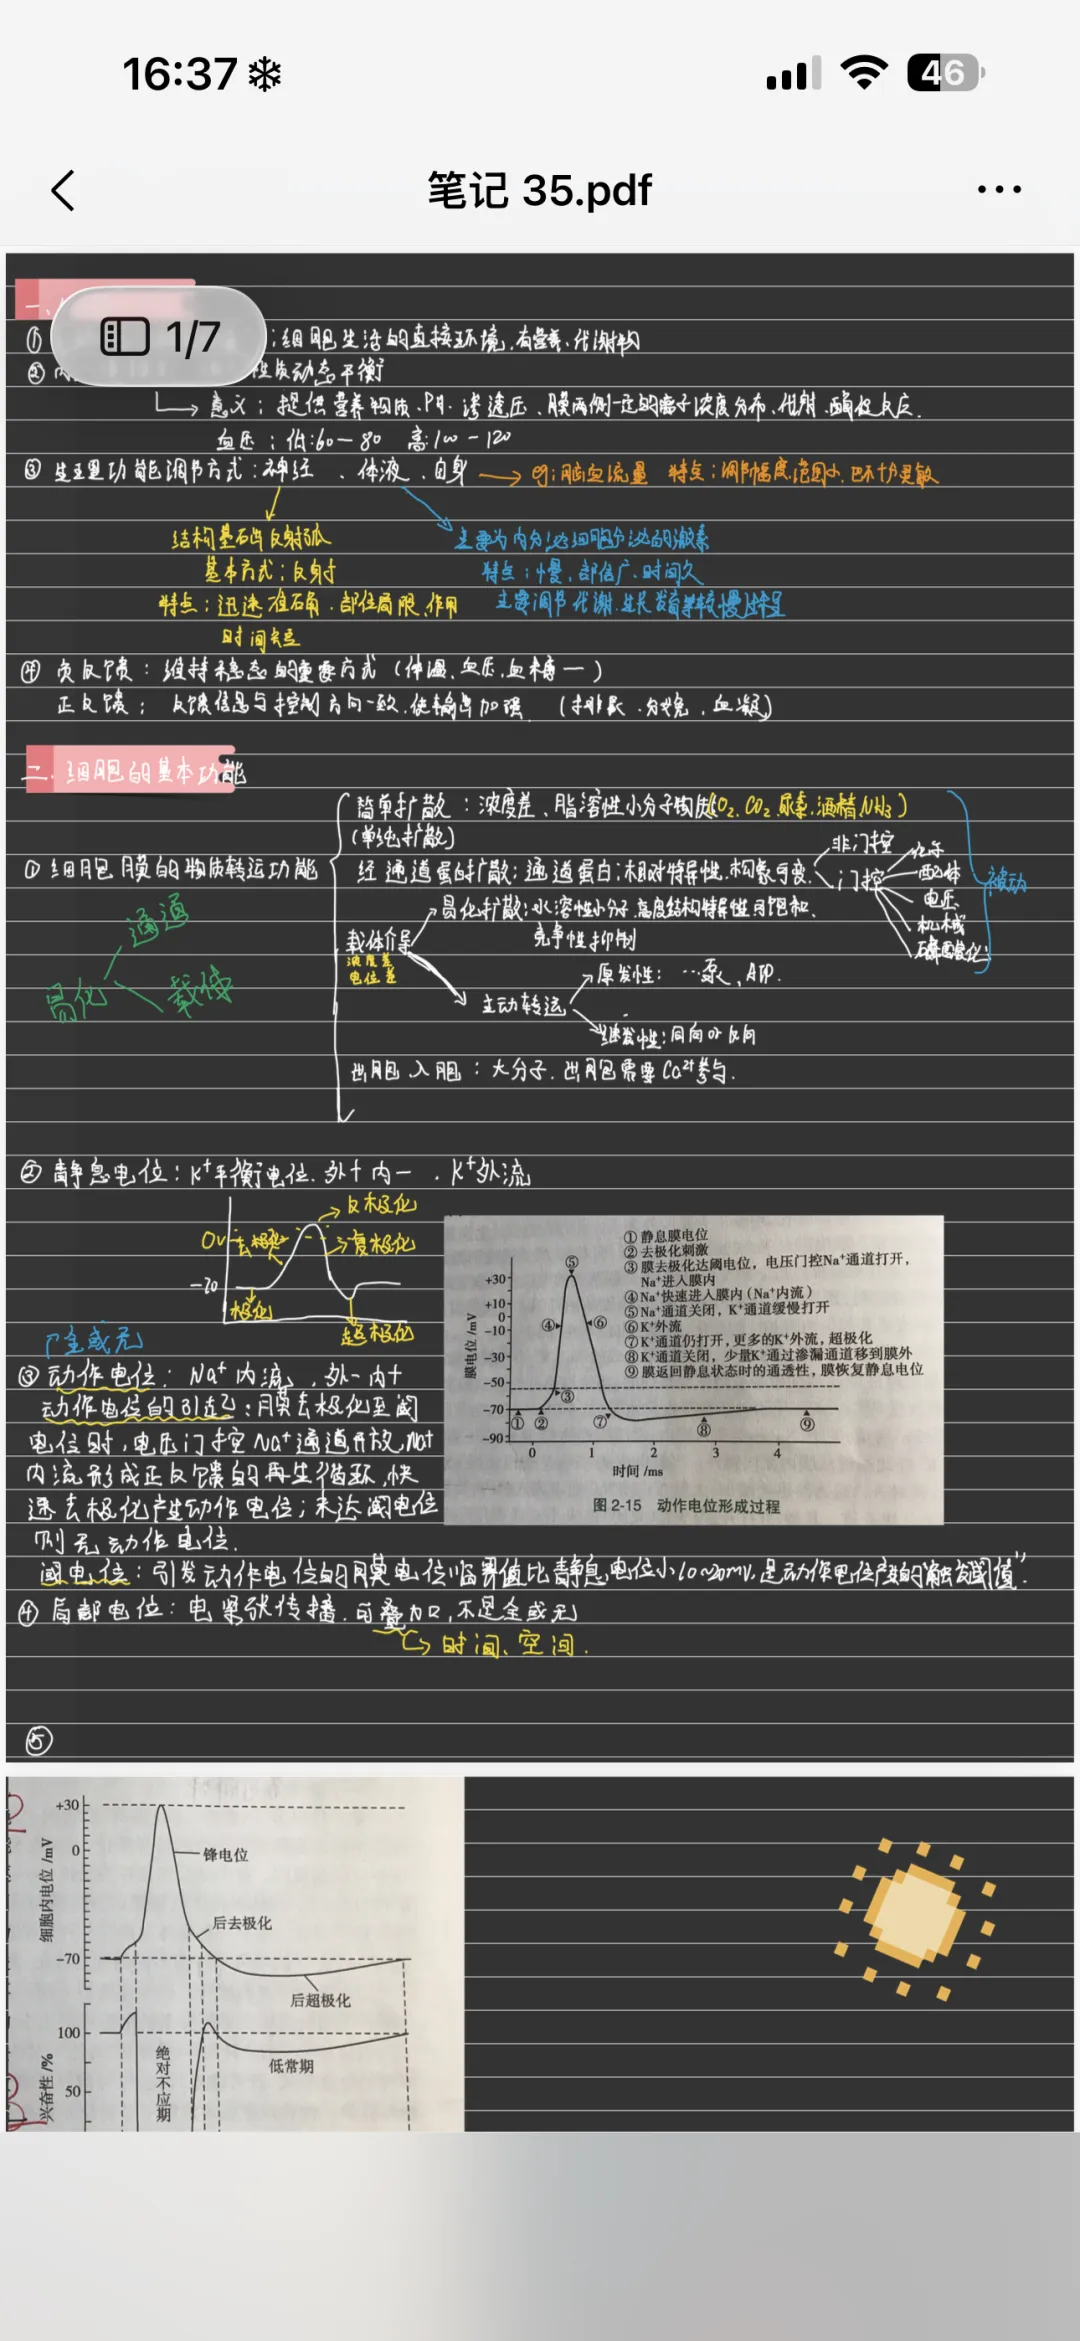 16:37
46
笔记 35.pdf
1/7
一、
① ：细胞生活的直接环境，有营养、代谢物
② 内 性质动态平衡
意义：提供营养物质、PH、渗透压、膜两侧一定的离子浓度分布、代谢、酶促反应.
血压：低:60—80 高:100-120
③ 生理功能调节方式：神经、体液、自身 → eg:脑血流量 特点：调节幅度、范围小、但不十分灵敏
结构基础反射弧
基本方式：反射
特点：迅速、准确、部位局限、作用
时间短
主要为内分泌细胞分泌的激素
特点：慢、部位广、时间久
主要调节代谢、生长发育等较慢过程
④ 负反馈：维持稳态的重要方式（体温、血压、血糖—）
正反馈：反馈信息与控制方向一致，使输出加强（排尿、分娩、血凝）
二.细胞的基本功能
① 细胞膜的物质转运功能
简单扩散：浓度差、脂溶性小分子物质(O₂.CO₂.尿素.酒精.NH₃)
(单纯扩散)
经通道蛋白扩散：通道蛋白；相对特异性、构象可变
非门控
门控
化学
配体
电压
机械
磷酸化
被动
载体介导
浓度差
电位差
易化扩散：水溶性小分子、高度结构特异性、可饱和、
竞争性抑制
主动转运
原发性：…泵、ATP.
继发性：同向or反向
出胞、入胞：大分子.出胞需要Ca²⁺参与.
易化
通道
载体
② 静息电位：K⁺平衡电位.外+内- .K⁺外流
0v
-70
去极化
反极化
复极化
极化
超极化
全或无
③ 动作电位：Na⁺内流，外-内+
动作电位的引起：膜去极化至阈
电位时，电压门控Na⁺通道开放,Na⁺
内流形成正反馈的再生循环,快
速去极化产生动作电位；未达阈电位
则无动作电位.
阈电位：引发动作电位的膜电位临界值比静息电位小10~20mV.是动作电位产生的“触发阈值”.
④ 局部电位：电紧张传播.可叠加,不是全或无
时间、空间.
⑤
①静息膜电位
②去极化刺激
③膜去极化达阈电位，电压门控Na⁺通道打开，
Na⁺进入膜内
④Na⁺快速进入膜内（Na⁺内流）
⑤Na⁺通道关闭，K⁺通道缓慢打开
⑥K⁺外流
⑦K⁺通道仍打开，更多的K⁺外流，超极化
⑧K⁺通道关闭，少量K⁺通过渗漏通道移到膜外
⑨膜返回静息状态时的通透性，膜恢复静息电位
膜电位 /mV
+30
+10
0
-10
-30
-50
-70
-90
① ② ③ ④ ⑤ ⑥ ⑦ ⑧ ⑨
0 1 2 3 4
时间 /ms
图 2-15 动作电位形成过程
细胞内电位 /mV
+30
0
-70
锋电位
后去极化
后超极化
兴奋性 /%
100
50
绝对不应期
低常期